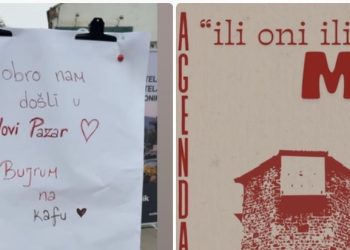 obro nam
došli u
Novi Pazar
Bujrum
na
kafu
AGENDA
“ili oni ili
M